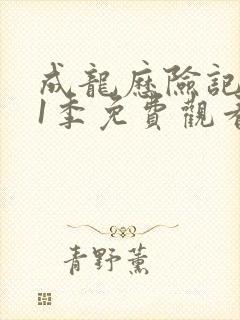 成龍歷險記
1季免費觀看
青野薰